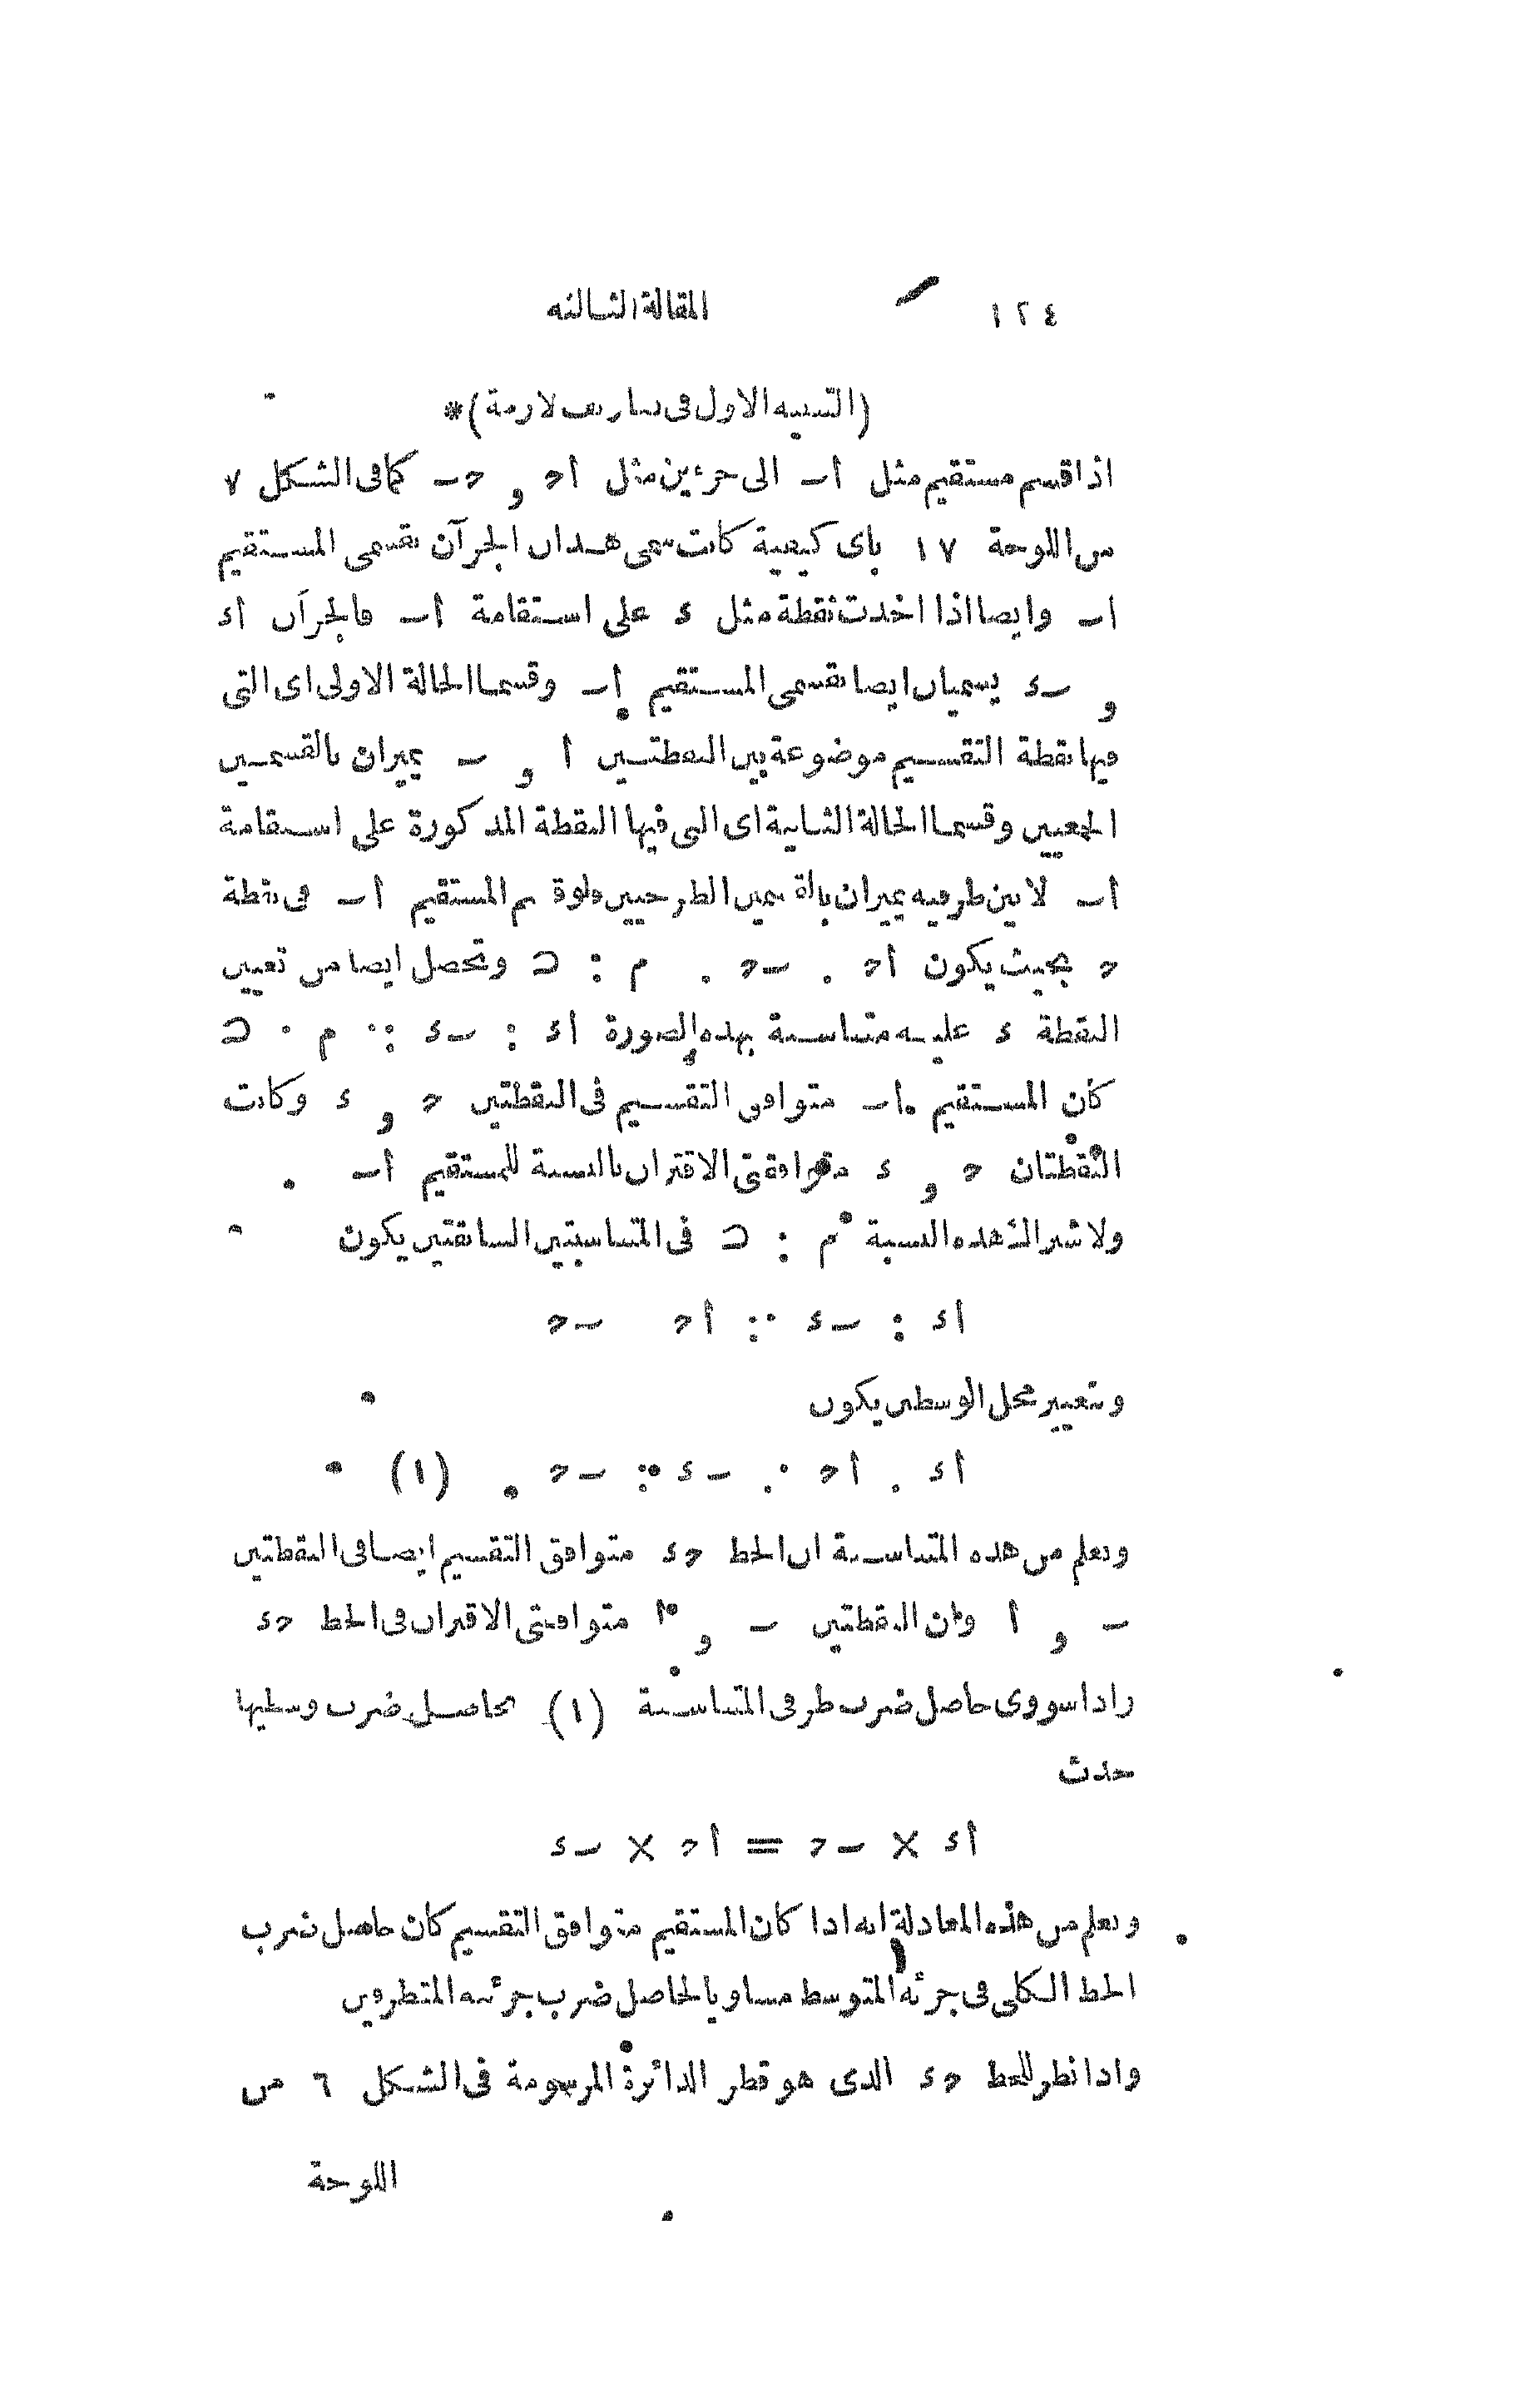 ١٢٤ المقالة الثالثه
(التنبيه الاول فى تعاريف لازمة)*
اذا قسم مستقيم مثل أ ب الى جزئين مثل أ ح و ح ب كما فى الشكل ٧
من اللوحة ١٧ باى كيفية كانت سمى هذان الجزآن بقسمى المستقيم
أ ب وايضا اذا اخذت نقطة مثل ء على استقامة أ ب فالجزآن أ ء
و ب ء يسميان ايضا بقسمى المستقيم أ ب وقسما الحالة الاولى اى التى
فيها نقطة التقسيم موضوعة بين النقطتين أ و ب يميزان بالقسمين
الجمعيين وقسما الحالة الثانية اى التى فيها النقطة المذكورة على استقامة
أ ب لا بين طرفيه يميزان بالقسمين الطرحيين فلو قسم المستقيم أ ب فى نقطة
ح بحيث يكون أ ح : ب ح :: م : ن وتحصل ايضا من تعيين
النقطة ء عليه متناسبة بهذه الصورة أ ء : ب ء :: م : ن
كان المستقيم أ ب متوافق التقسيم فى النقطتين ح و ء وكانت
النقطتان ح و ء متوافقتى الاقتران بالنسبة للمستقيم أ ب
ولاشتراك هذه النسبة م : ن فى المتناسبتين السابقتين يكون
أ ء : ب ء :: أ ح ب ح
وبتغيير محل الوسطين يكون
أ ء : أ ح :: ب ء : ب ح (١)
ويعلم من هذه المتناسبة ان الخط ح ء متوافق التقسيم ايضا فى النقطتين
ب و أ وان النقطتين ب و أ متوافقتى الاقتران فى الخط ح ء
واذا سووى حاصل ضرب طرفى المتناسبة (١) بحاصل ضرب وسطيها
حدث
أ ء × ب ح = أ ح × ب ء
ويعلم من هذه المعادلة انه اذا كان المستقيم متوافق التقسيم كان حاصل ضرب
الخط الكلى فى جزئه المتوسط مساويا لحاصل ضرب جزئيه المتطرفين
واذا نظر للخط ح ء الذى هو قطر الدائرة المرسومة فى الشكل ٦ من
اللوحة